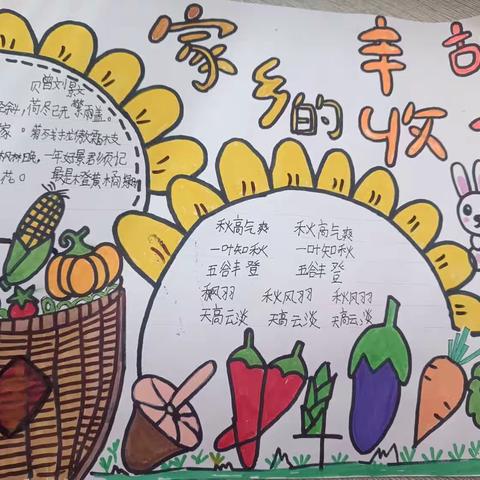 家乡的丰收
赠刘景文
斜，荷尽已无擎雨盖。
家。菊残犹傲霜枝
枫林晚，一年好景君须记
花。最是橙黄橘绿
秋高气爽 秋高气爽
一叶知秋 一叶知秋
五谷丰登 五谷丰登
秋风羽 秋风羽
天高云淡 天高云淡 天高云淡